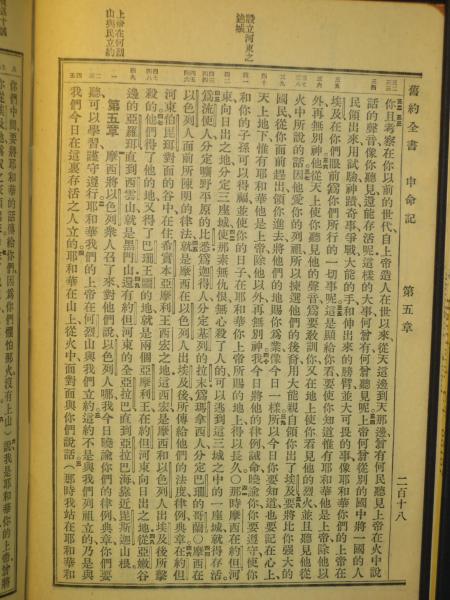 舊約全書　申命記　第五章　二百十八
你且考察在你以前的世代自上帝造人在世以來從天這邊到天那邊曾有何民聽見上帝在火中說
話的聲音像你聽見還能存活呢這樣的大事何曾有何曾聽見呢上帝何曾從別的國中將一國的人
民領出來用試驗神蹟奇事爭戰大能的手和伸出來的膀臂並大可畏的事像耶和華你們的上帝在
埃及在你們眼前爲你們所行的一切事呢這是顯給你看要使你知道惟有耶和華他是上帝除他以
外再無別神他從天上使你聽見他的聲音爲要教訓你又在地上使你看見他的烈火並且聽見他從
火中所說的話因他愛你的列祖所以揀選他們的後裔用大能親自領你出了埃及要將比你強大的
國民從你面前趕出領你進去將他們的地賜你爲業像今日一樣所以今日你要知道也要記在心上
天上地下惟有耶和華他是上帝除他以外再無別神我今日將他的律例誡命曉諭你你要遵守使你
和你的子孫可以得福並使你的日子在耶和華你上帝所賜的地上得以長久○那時摩西在約但河
東向日出之地分定三座城使那素無仇恨無心殺了人的可以逃到這三城之中的一座城就得存活
爲流便人分定曠野平原的比悉爲迦得人分定基列的拉末爲瑪拿西人分定巴珊的哥蘭○摩西在
以色列人面前所陳明的律法就是摩西在以色列人出埃及後所傳給他們的法度律例典章在約但
河東伯毘珥對面的谷中在住希實本亞摩利王西宏之地這西宏是摩西和以色列人出埃及後所擊
殺的他們得了他的地又得了巴珊王噩的地就是兩個亞摩利王在約但河東向日出之地從亞嫩谷
邊的亞羅珥直到西雲山就是黑門山還有約但河東的全亞拉巴直到亞拉巴海靠近毘斯迦山根
第五章　摩西將以色列衆人召了來對他們說以色列人哪我今日曉諭你們的律例典章你們要
聽可以學習謹守遵行耶和華我們的上帝在何烈山與我們立約這約不是與我們列祖立的乃是與
我們今日在這裏存活之人立的耶和華在山上從火中面對面與你們說話(那時我站在耶和華和
設立河東之
逃城
上帝在何烈
山與民立約
你們中間要將耶和華的話傳給你們因爲你們懼怕那火沒有上山)說我是耶和華你的上帝曾將